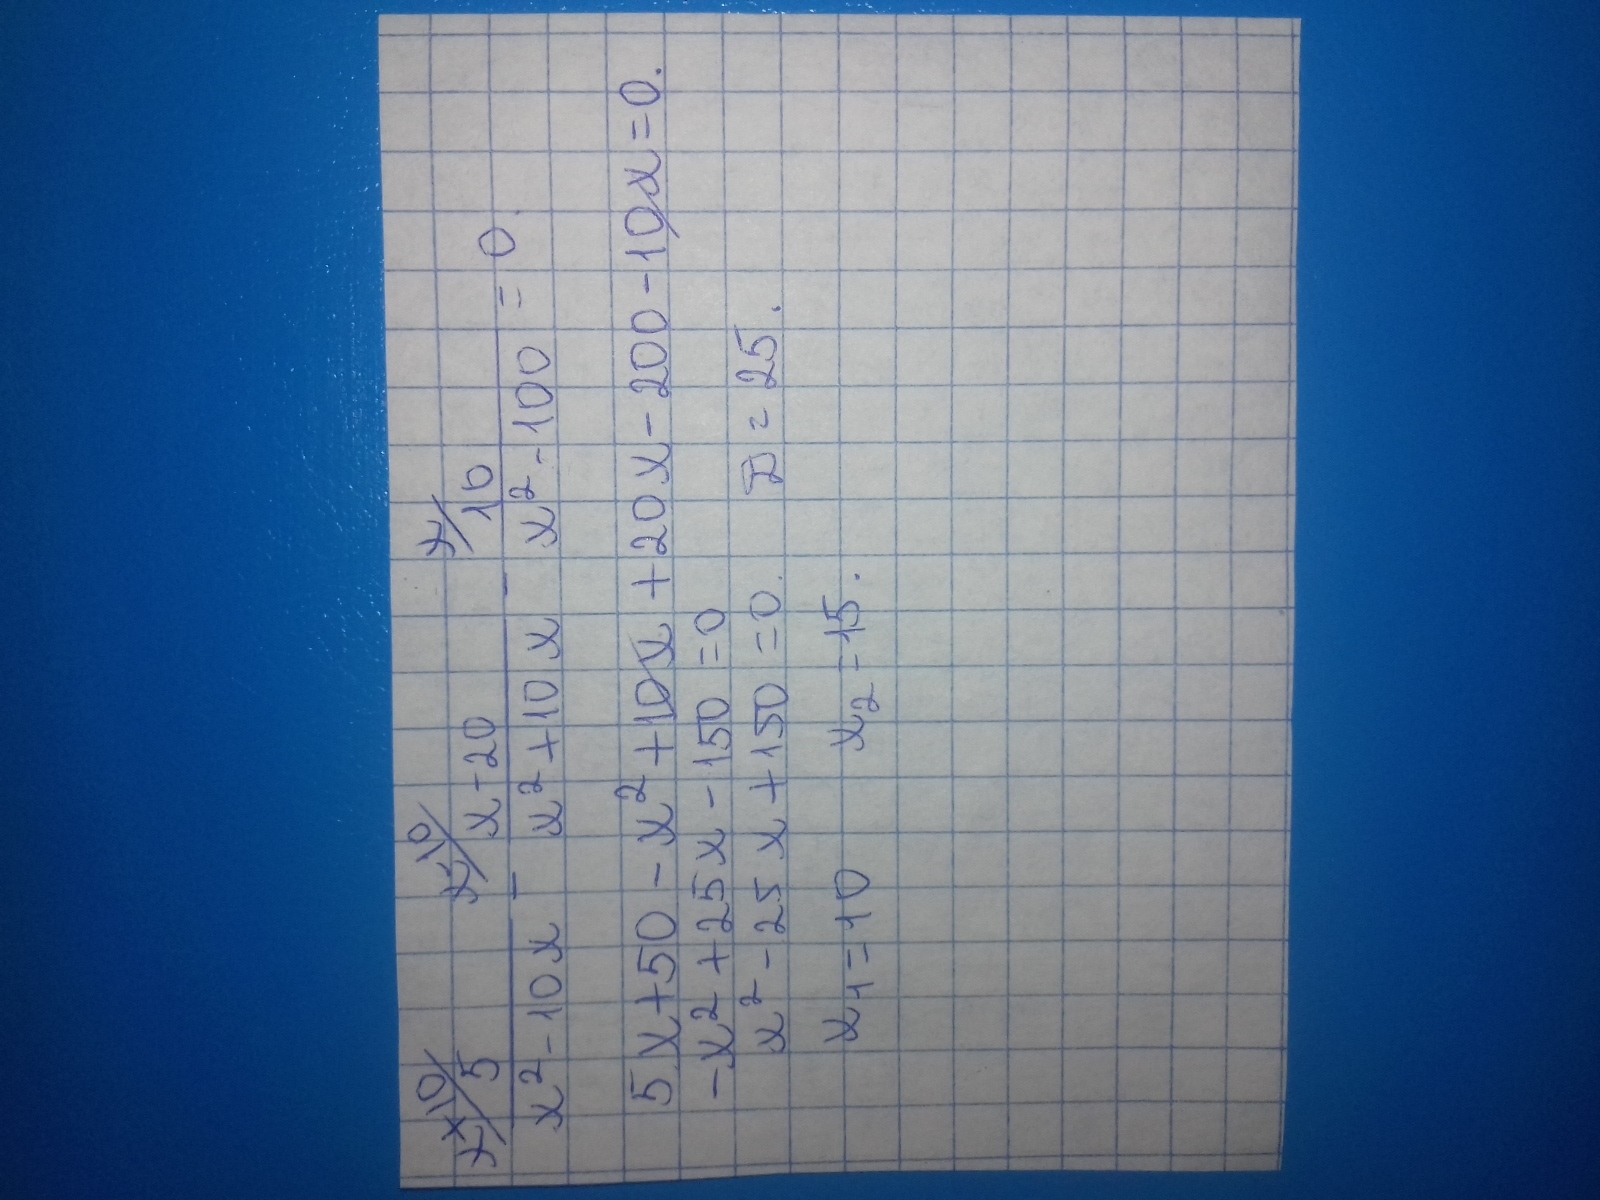 x+10/ x-10/ x/
5 x-20 10
x² - 10x - x² + 10x - x² - 100 = 0.
5x+50 - x² + 10x + 20x - 200 - 10x = 0.
-x² + 25x - 150 = 0
x² - 25x + 150 = 0. D = 25.
x₁ = 10 x₂ = 15.